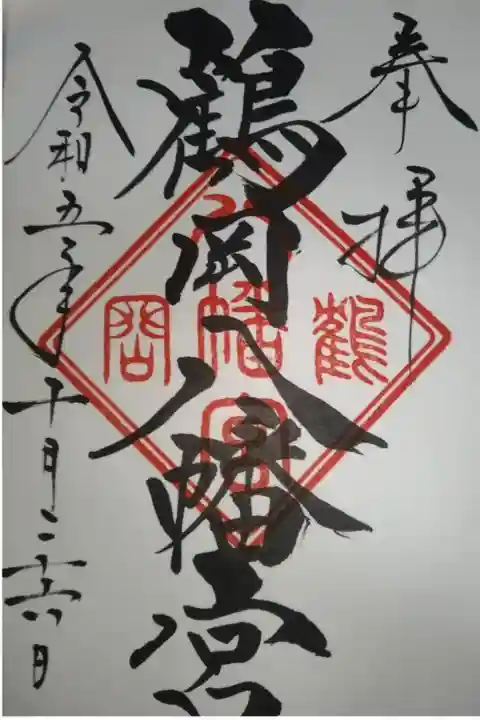 奉拝
鶴岡八幡宮
鶴
八幡宮
岡
令和五年十月二十六日